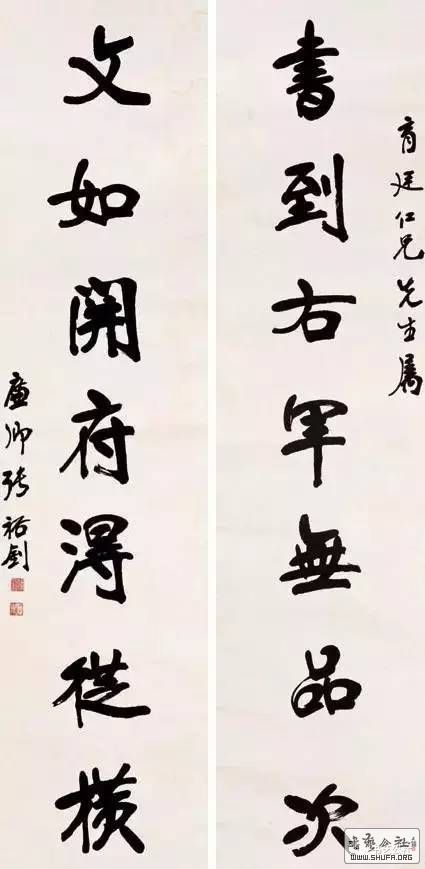 育廷仁兄先生属
書到右軍無品次
文如開府得從橫
廉卿張裕釗
WWW.SHUFA.ORG